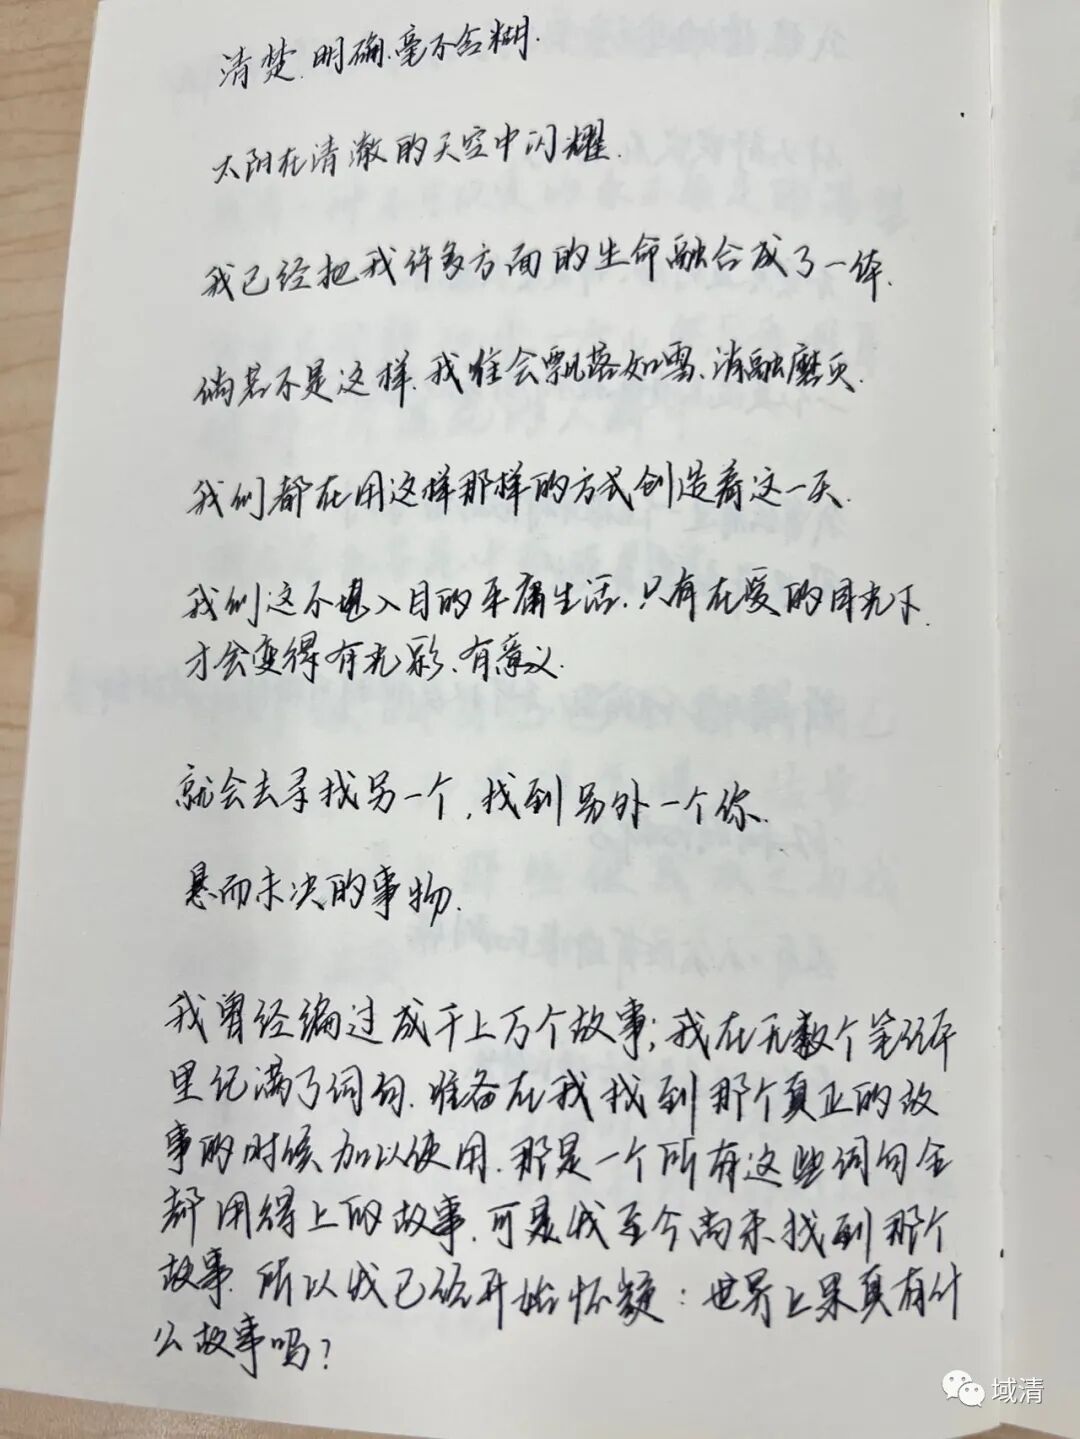 清楚.明确.毫不含糊.
太阳在清澈的天空中闪耀.
我已经把我许多方面的生命融合成了一体.
倘若不是这样.我准会飘落如雪、消融磨灭.
我们都在用这样那样的方式创造着这一天.
我们这不堪入目的平庸生活.只有在爱的目光下.
才会变得有光彩、有意义.
就会去寻找另一个,找到另外一个你.
悬而未决的事物.
我曾经编过成千上万个故事;我在无数个笔记本
里记满了词句.准备在我找到那个真正的故
事的时候加以使用.那是一个所有这些词句全
都用得上的故事.可是我至今尚未找到那个
故事.所以我已经开始怀疑:世界上果真有什
么故事吗?
域清